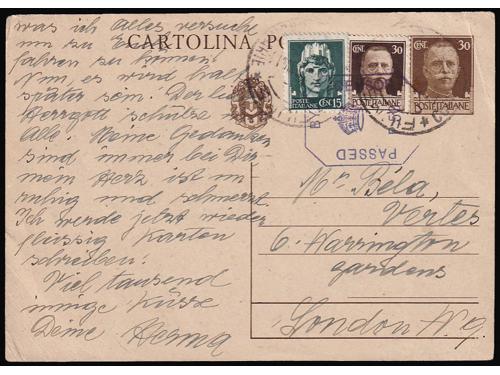 was ich Alles versuche
um zu Euch
fahren zu können
Nun, es wird halt
später sein. Der liebe
Herrgott schütze
Alle. Meine Gedanken
sind immer bei Dir
mein Herz ist un
ruhig und schmerzt
Ich werde jetzt wieder
fleissig Karten
schreiben.
Viel tausend
innige Küsse
Deine Herma
CARTOLINA PO
POSTE ITALIANE CEN 15
CENT. 30
POSTE ITALIANE
CENT. 30
POSTE ITALIANE
PASSED
BY
Mr Béla
Vertes
6. Warrington
gardens
London W. 9.